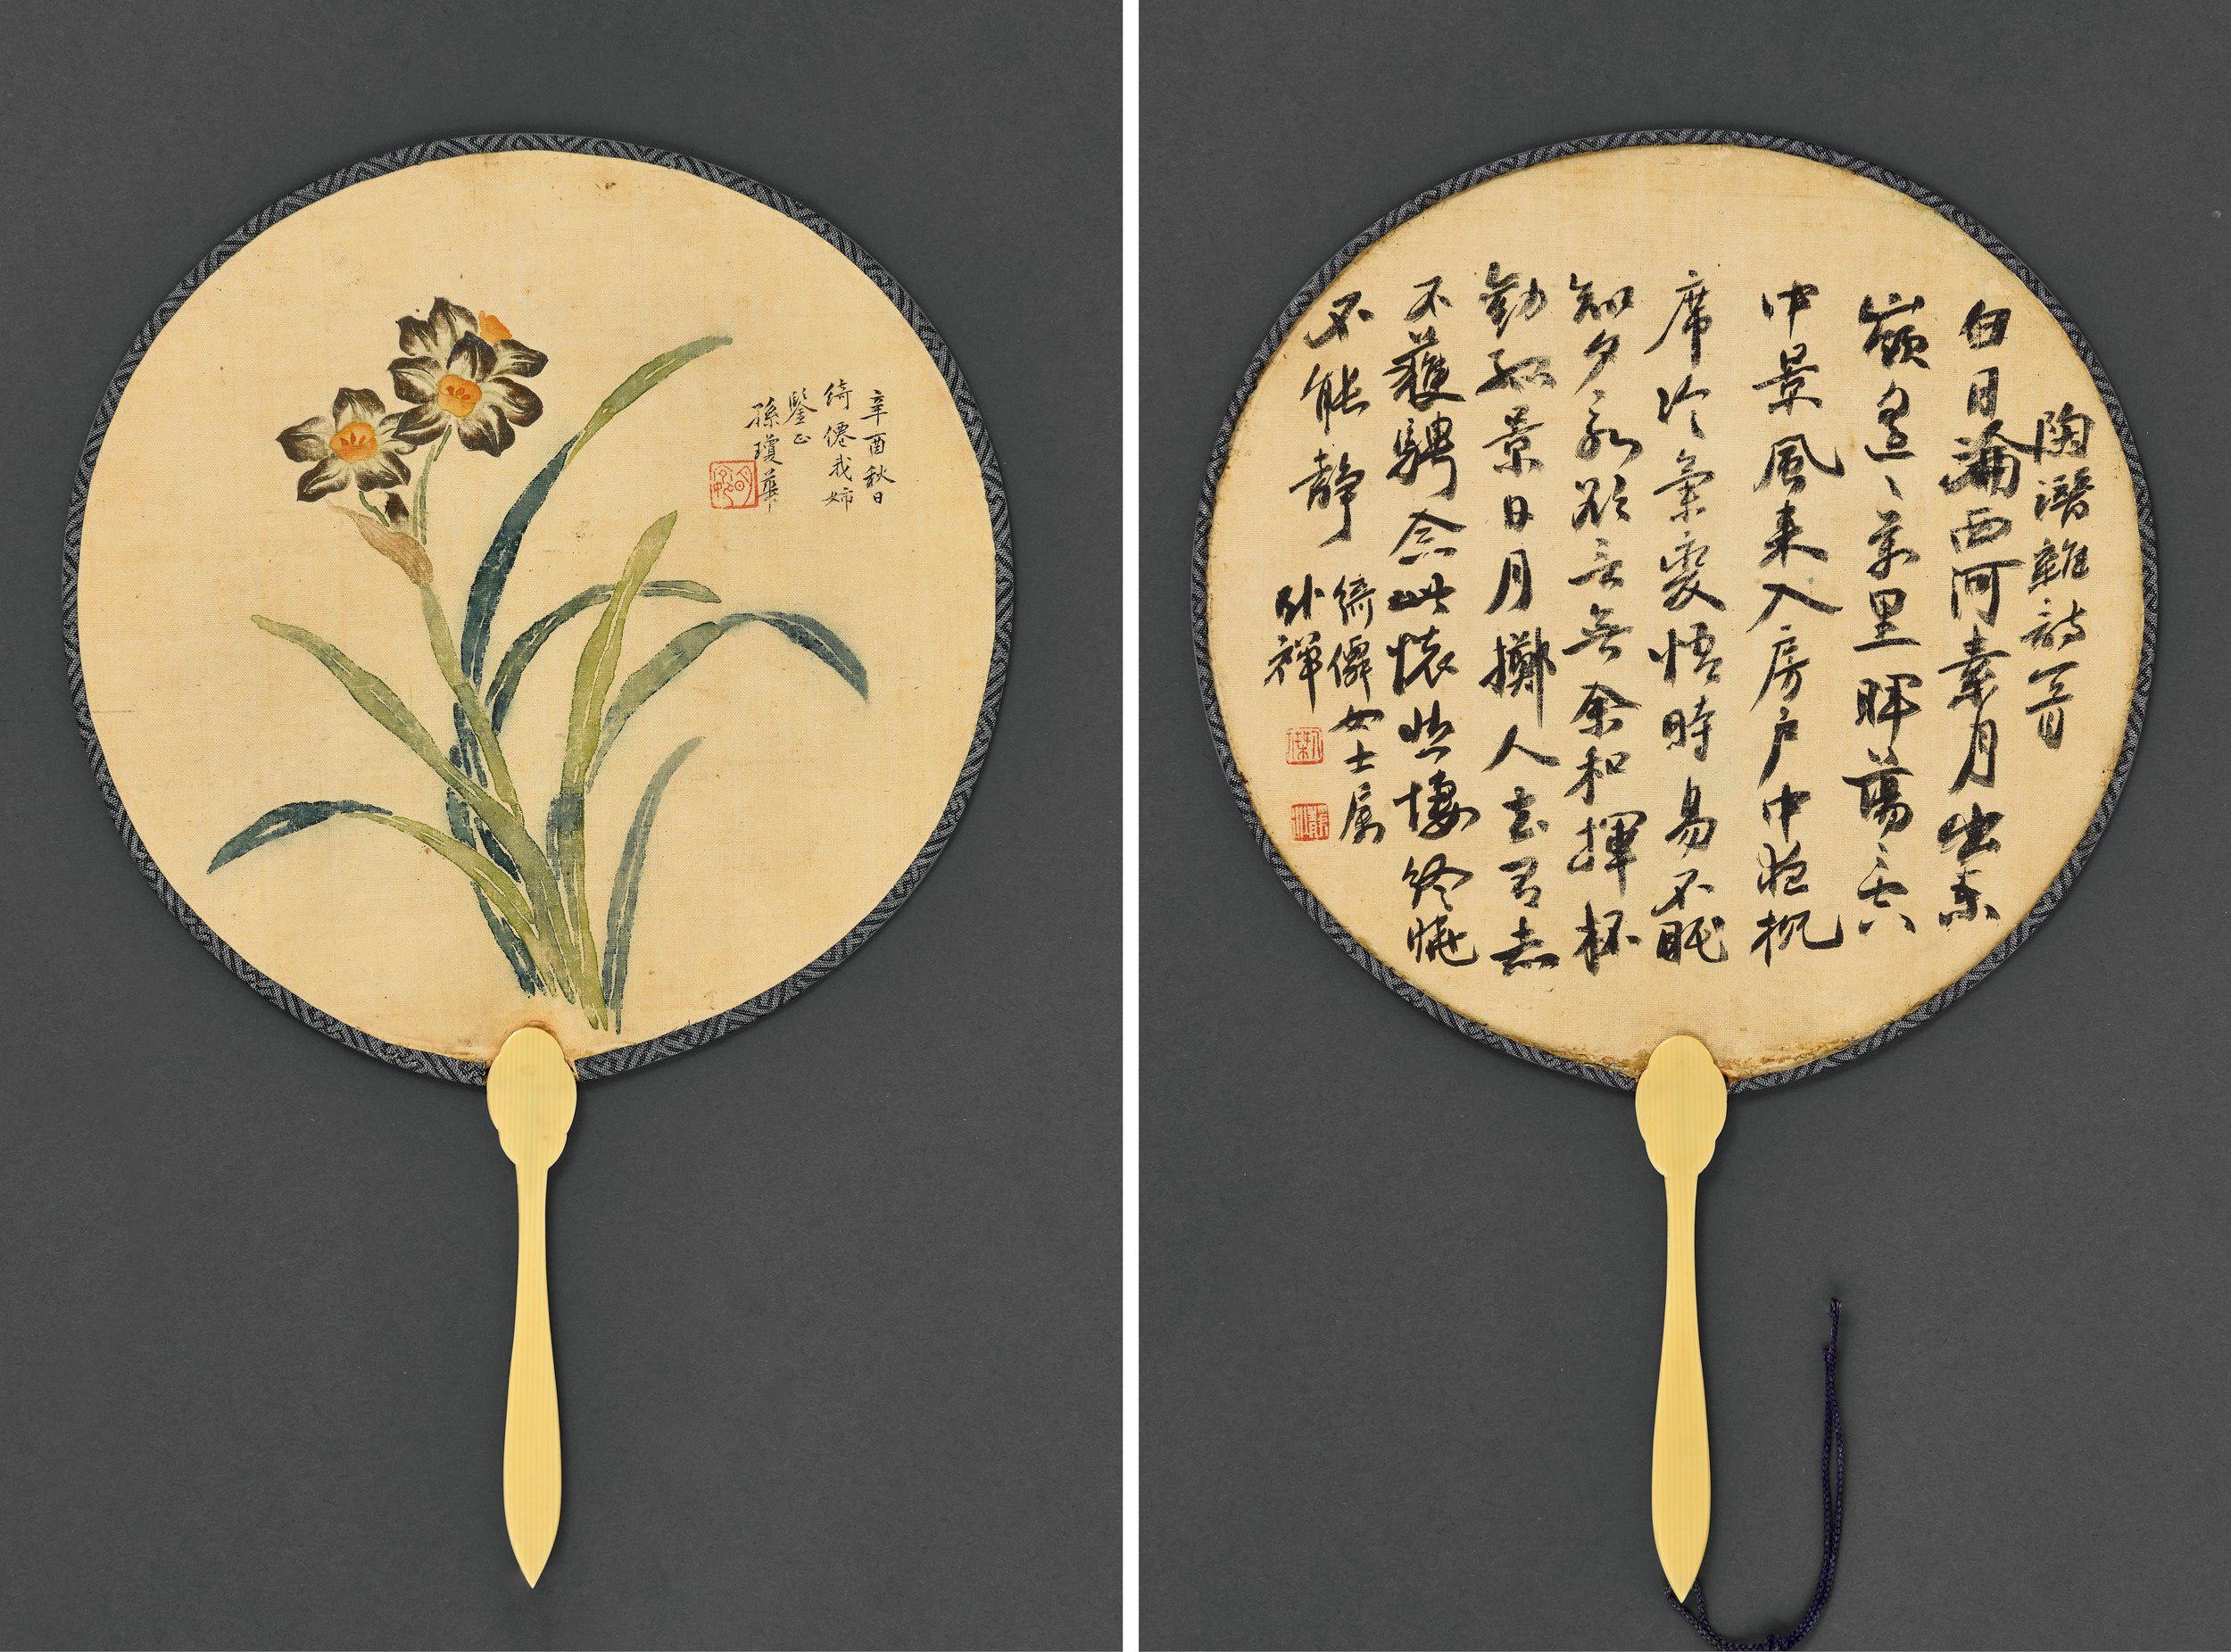 辛酉秋日
綺僊我姊
鑒正
孫瓊華
陶潛雜詩一首
白日淪西河素月出東
嶺遙〻萬里暉蕩〻空
中景風來入房戶中夜枕
席冷氣變悟時易不眠
知夕永欲言無余和揮杯
勸孤景日月擲人去有志
不獲騁念此懷悲悽終曉
不能靜
綺僊女士屬
禪